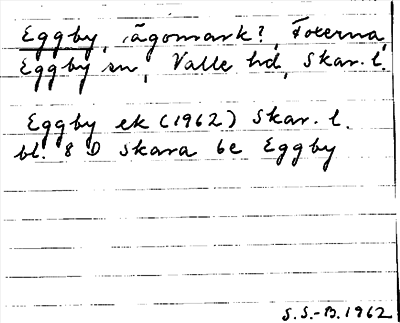 Eggby, ägomark?, Toterna,
Eggby sn, Valle hd, Skar. l.
Eggby ek (1962) Skar. l.
bl. 8 D Skara 6e Eggby
S.S.-B. 1962